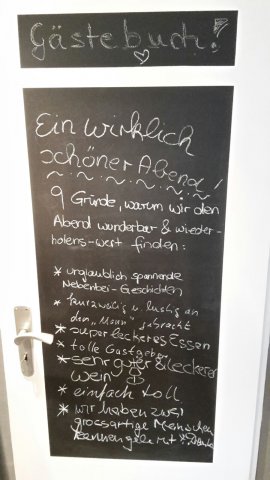 Gästebuch!
Ein wirklich
schöner Abend!
9 Gründe, warum wir den
Abend wunderbar & wieder-
holens-wert finden:
* unglaublich spannende
Nebenbei-Geschichten
* kurzweilig u. lustig an
den "Mann" gebracht
* super leckeres Essen
* tolle Gastgeber
* sehr guter & leckerer
Wein
* einfach toll
* wir haben zwei
grossartige Menschen
kennengelernt